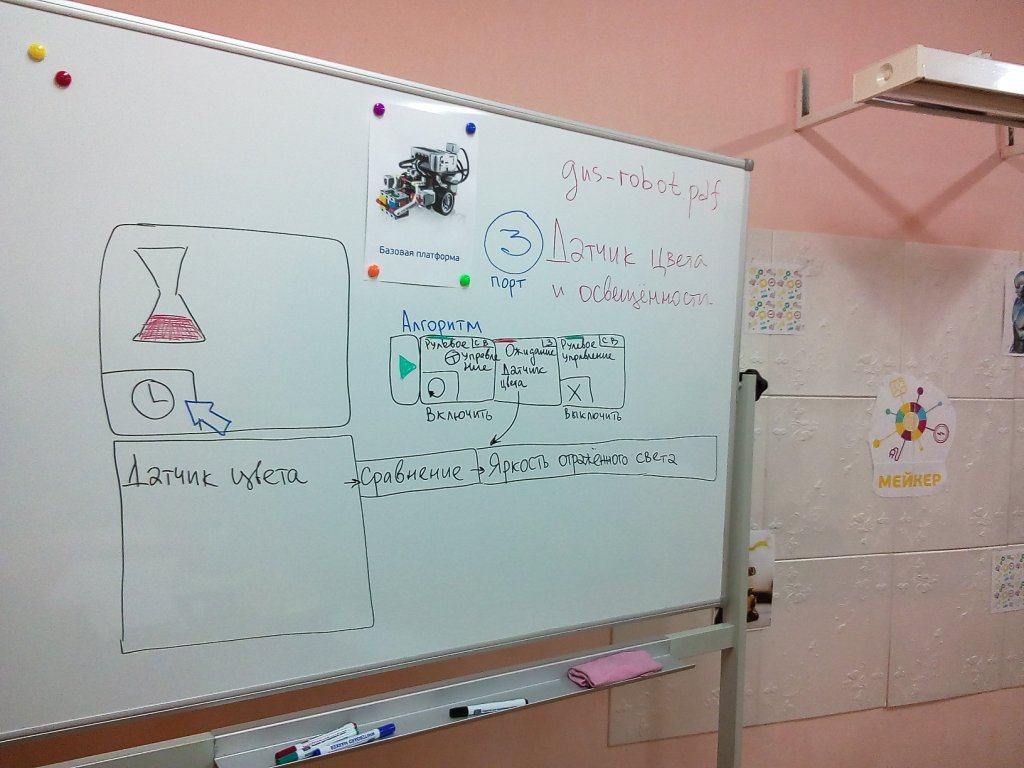 gus-robot.pdf
Базовая платформа
3
порт
Датчик цвета
и освещённости
Алгоритм
Рулевое
управле
ние
C B
Ожидание
3
Датчик
цвета
Рулевое
управление
C B
X
Включить
Выключить
Датчик цвета
Сравнение
Яркость отражённого света
МЕЙКЕР